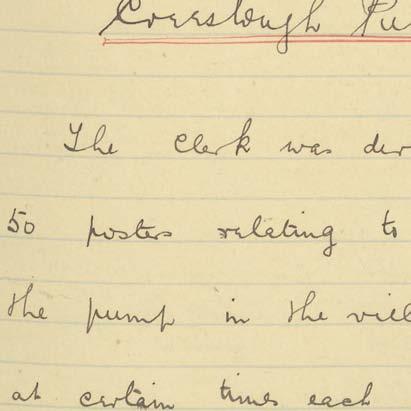 The clerk was dir
50 posters relating to
the pump in the vill
at certain times each